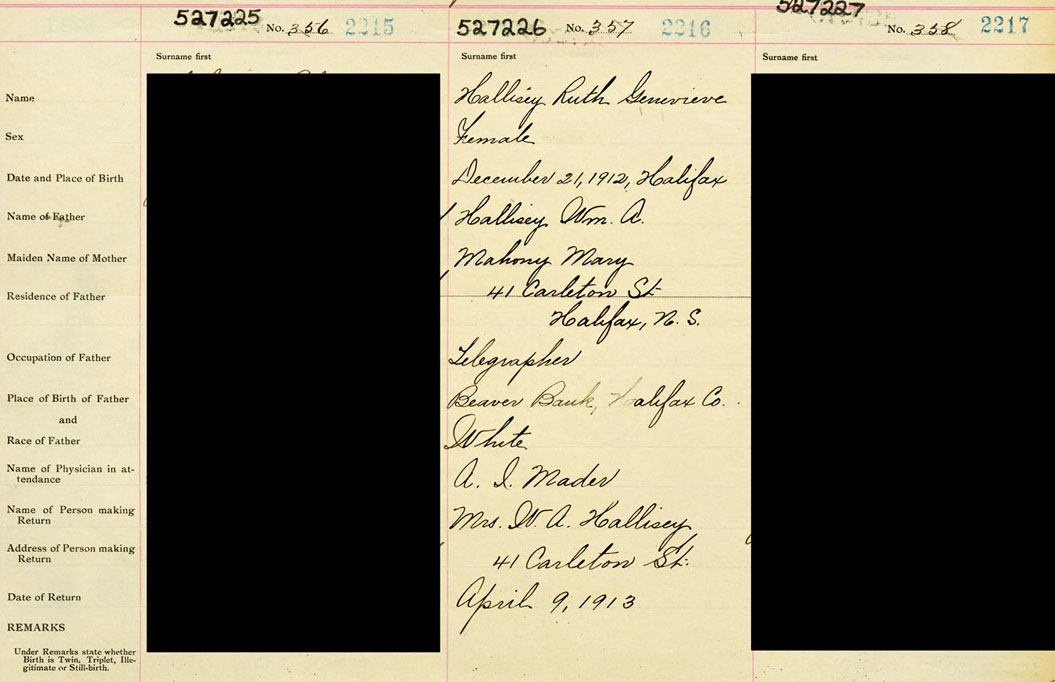 527225 No. 356 2215
527226 No. 357 2216
527227 No. 358 2217
Surname first
Surname first
Surname first
Name Hallisey Ruth Genevieve
Sex Female
Date and Place of Birth December 21, 1912, Halifax
Name of Father Hallisey Wm. A.
Maiden Name of Mother Mahony Mary
Residence of Father 41 Carleton St
Halifax, N. S.
Occupation of Father Telegrapher
Place of Birth of Father Beaver Bank, Halifax Co.
and
Race of Father White
Name of Physician in at-
tendance A. I. Mader
Name of Person making
Return Mrs. W. A. Hallisey
Address of Person making
Return 41 Carleton St.
Date of Return April 9, 1913
REMARKS
Under Remarks state whether
Birth is Twin, Triplet, Ille-
gitimate or Still-birth.